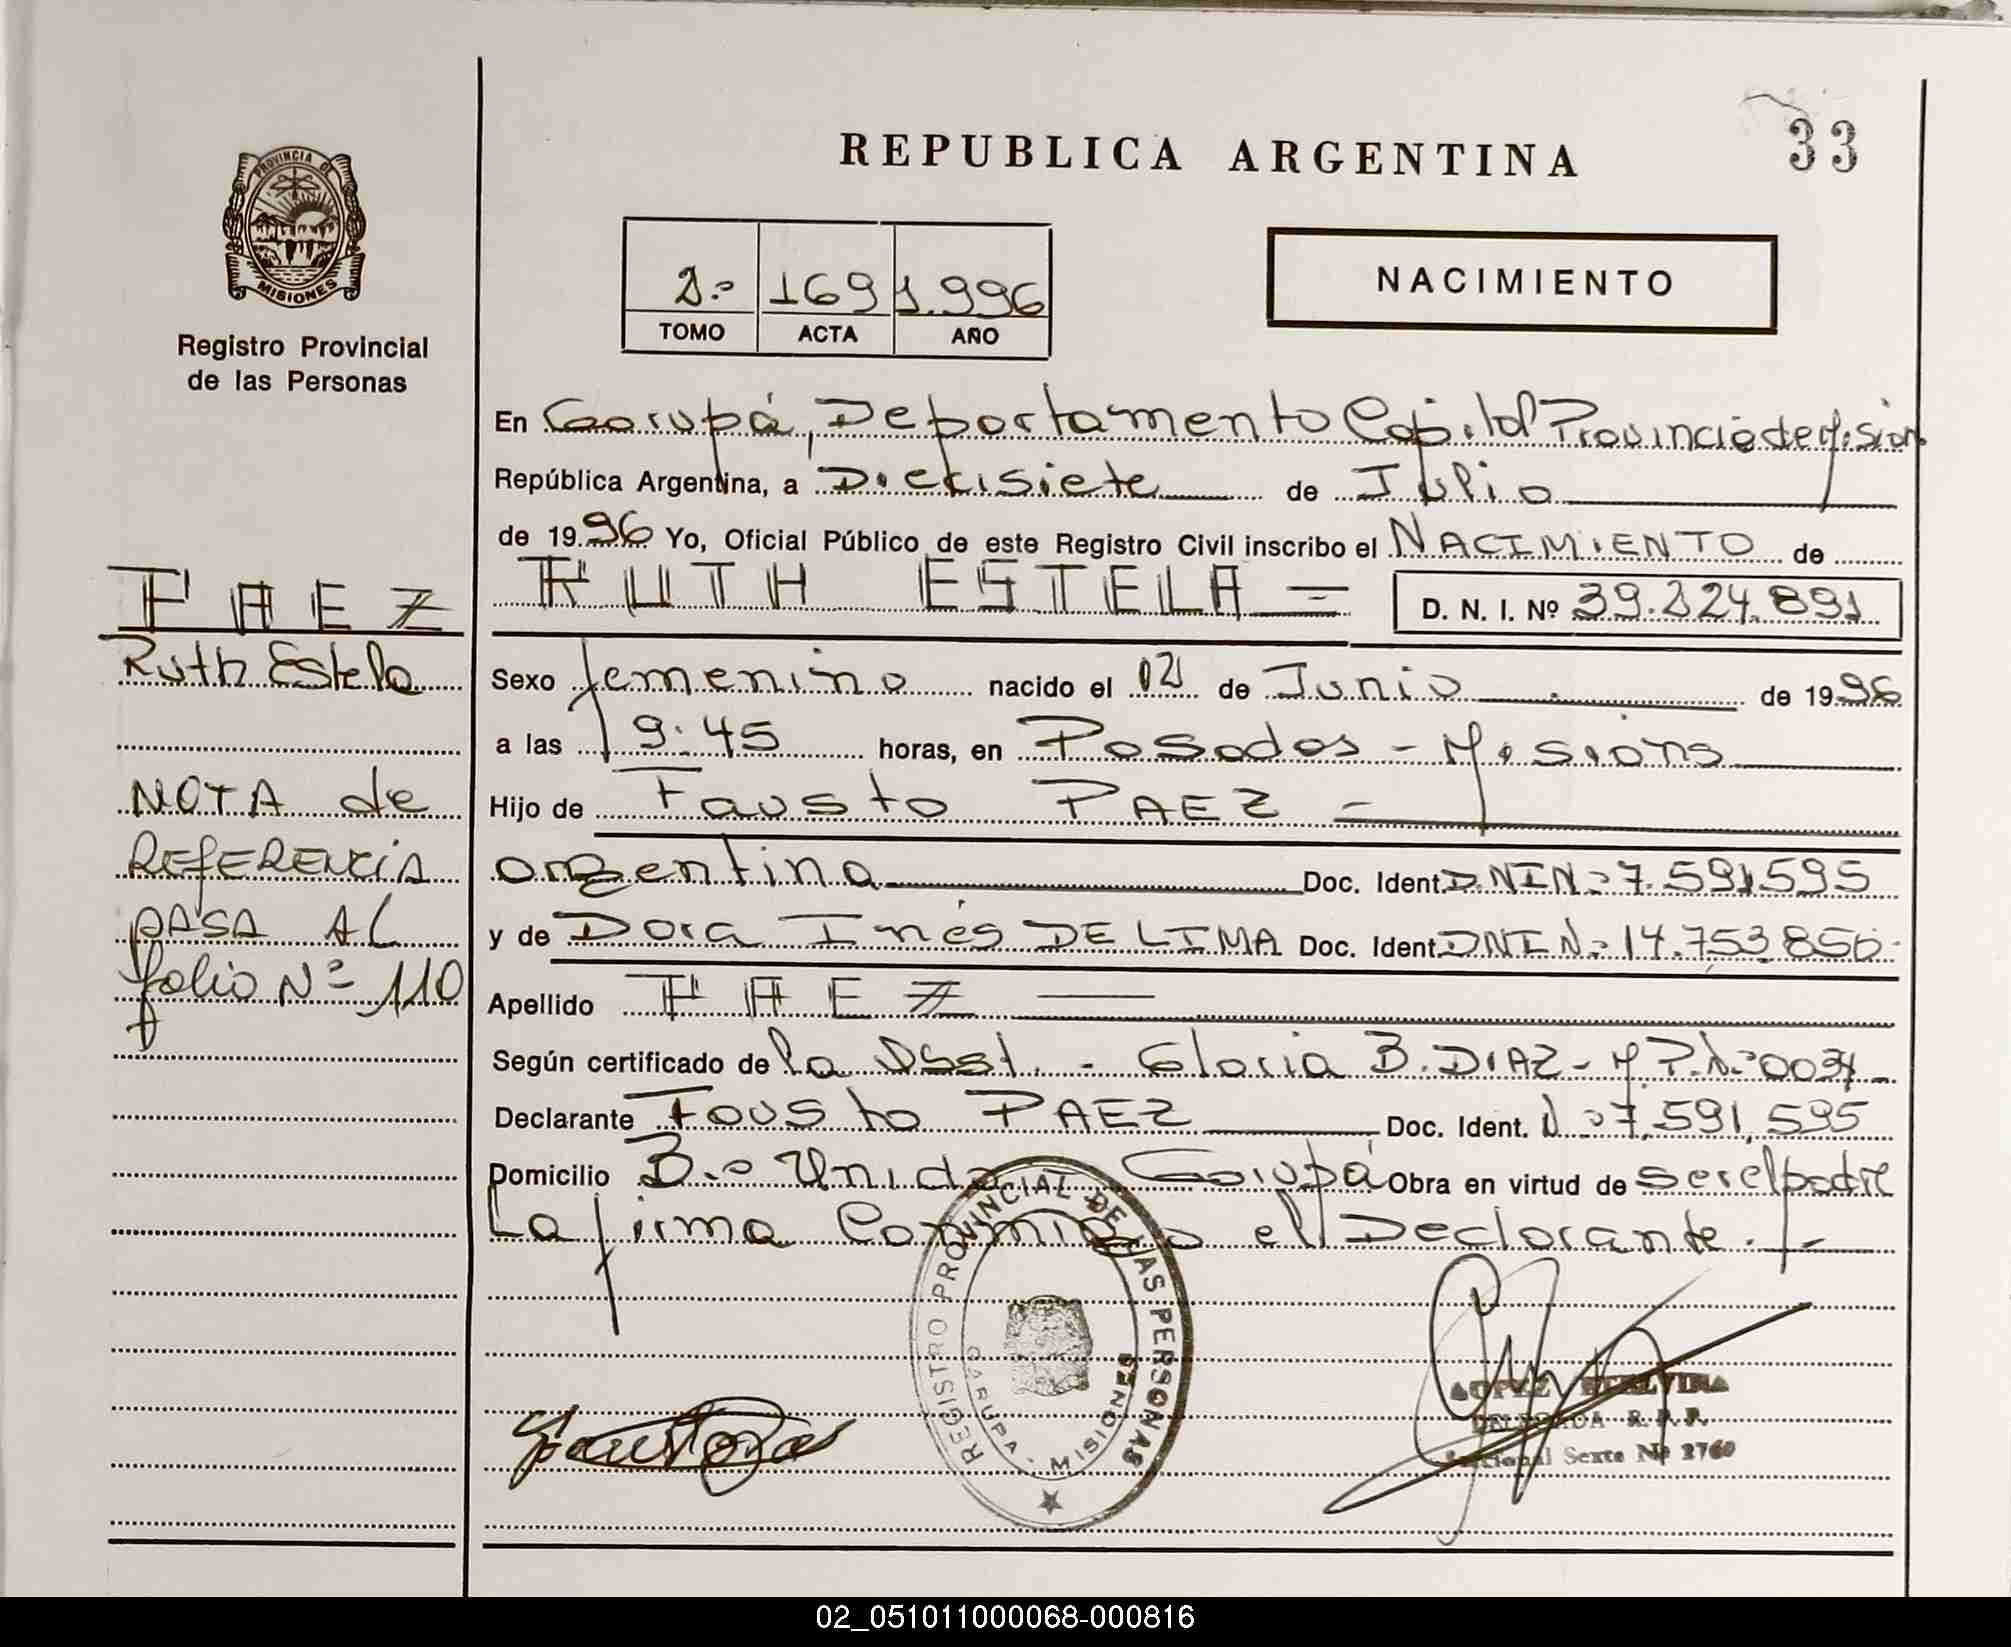 REPUBLICA ARGENTINA
33
PROVINCIA DE
MISIONES
Registro Provincial
de las Personas
2º 169 1.996
TOMO ACTA AÑO
NACIMIENTO
En Garupá, Departamento Capital Provincia de Misiones
República Argentina, a Diecisiete de Julio
de 1996 Yo, Oficial Público de este Registro Civil inscribo el NACIMIENTO de
RUTH ESTELA = D. N. I. Nº 39.224.891
Sexo femenino nacido el 02 de Junio de 1996
a las 19:45 horas, en Posadas - Misions
Hijo de Fausto PAEZ
argentina Doc. Ident. DNI Nº 7.591.595
y de Dora Inés DE LIMA Doc. Ident. DNI Nº 14.753.856
Apellido PAEZ
Según certificado de la Obst. - Gloria B. DIAZ - M.P.Nº 0034
Declarante Fausto PAEZ Doc. Ident. Nº 7.591.595
Domicilio Bº Unido Garupá Obra en virtud de ser el padre
La firma Conmigo el Declarante.
PAEZ
Ruth Estela
NOTA de
REFERENCIA
PASA AL
folio Nº 110
REGISTRO PROVINCIAL DE LAS PERSONAS
GARUPA - MISIONES
LOPEZ
DELEGADA R. P. P.
Seccional Sexta Nº 2760
02_051011000068-000816